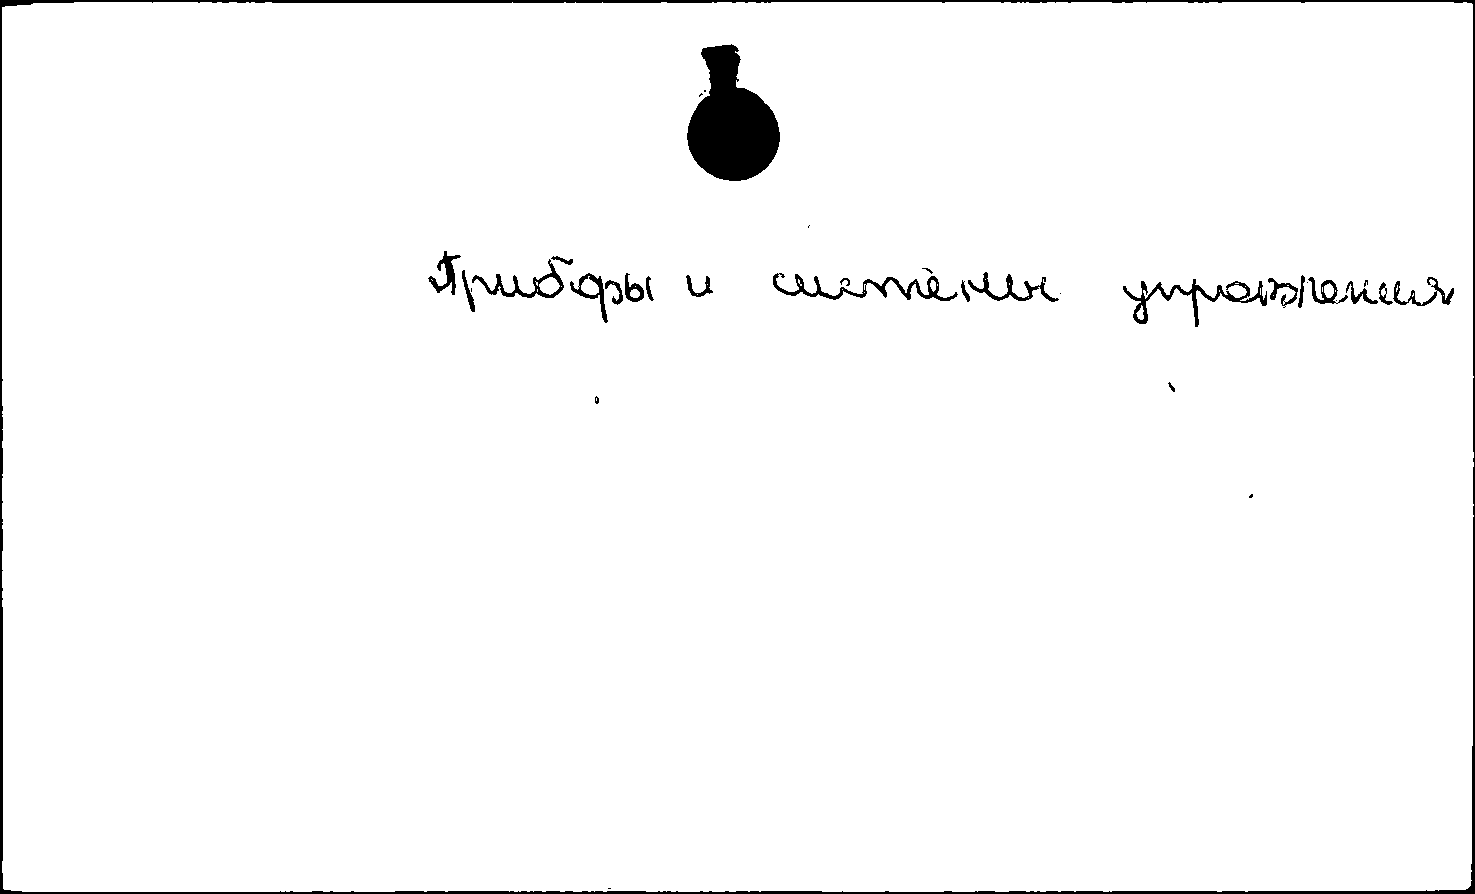 Приборы и системы управления